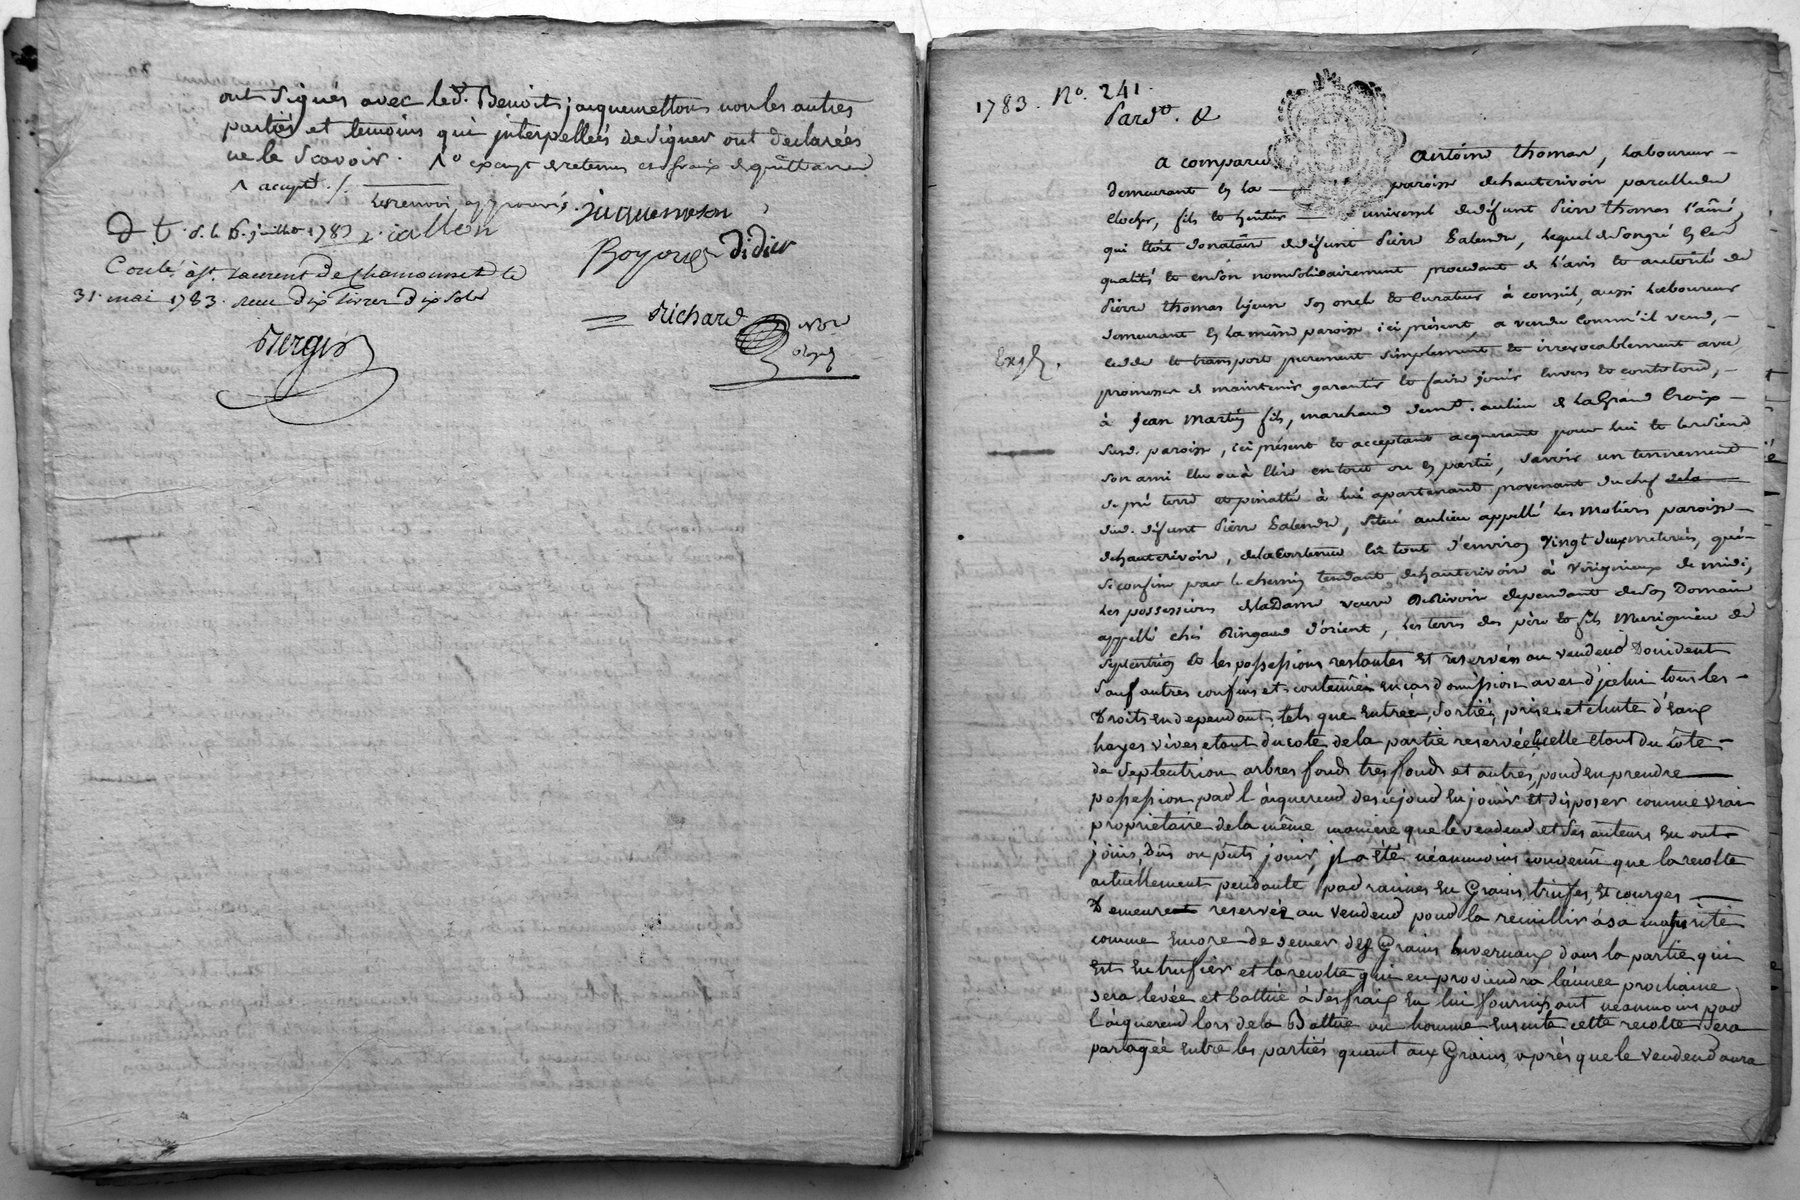 ont signés avec led. Benoit jacquemetton non les autres
parties et temoins qui interpellées de signer ont declarées
ne le scavoir.
jaquemeton
Boyer Didier
Coule à st. Laurent de Chamousset le
31. mai 1783. reçu dix livres dix sols
Richard
Bergis
1783. No. 241.
A comparu Antoine thomas, Laboureur
demeurant en la paroisse dehauterivoir
clocher, fils et heritier universel dudéfunt Pierre thomas l'aîné,
qui étoit donataire dedéfunt Pierre
qualité et enson nomsolidairement procedant de l'avis et autorité de
Pierre thomas lejeune son oncle et Curateur à conseil, aussi Laboureur
demeurant en lamême paroisse ici présent, a vendu Comm'il vend,
cede et transporte purement simplement et irrevocablement avec
promesse de maintenir garantir et faire jouir Envers et contretous,
à Jean Martin fils, marchand demt. aulieu de LaGrand Croix
susd. paroisse, ici présent et acceptant acquerant pour lui et les siens
son ami élu ouà élire entout ou en partie, savoir un tennement
de pré terre et pinatte à lui apartenant provenant duchef dela
dud. défunt Pierre situé aulieu appellé Les Moliers paroisse
dehauterivoir, delaContenue en tout d'environ vingt deuxmeterées, qui
Seconfine par le chemin tendant dehauterivoir à Virigneux de midi,
Les possessions delaDame veuve dependant deson Domaine
appellé chés Ringaud d'orient, Les terres des père et fils Murigneux de
septentrion et les possessions restantes et reservées au vendeur Doccident
Sauf autres confins et contenües encas d'omission avec d'jcelui tous les
Droits en dependants, tels que entrées, sorties, prises et chute d'eaux
hayes vives etant du coté de la partie reservée Et celle etant du côté
de septentrion arbres fonds tresfonds et autres, pour en prendre
possession par l'aiquereur des cejour en jouir et disposer comme vrai
propriétaire de la même maniere que le vendeur et ses auteurs en ont
joüis, dûs ou pûts jouir, jl a été néanmoins convenû que la recolte
actuellement pendante par racines en Grains, trufes, et courges
Demeurent reservée au vendeur pour la recuillir à sa maturité
comme encore de semer des Grains hivernaux dans la partie qui
est en trufier et la recolte qui en proviendra l'année prochaine
sera levée et battue à ses frais en lui fournissant neanmoins par
l'aiquereur lors de la Battue un homme ensuite cette recolte sera
partagée entre les parties quant aux Grains, après que le vendeur aura